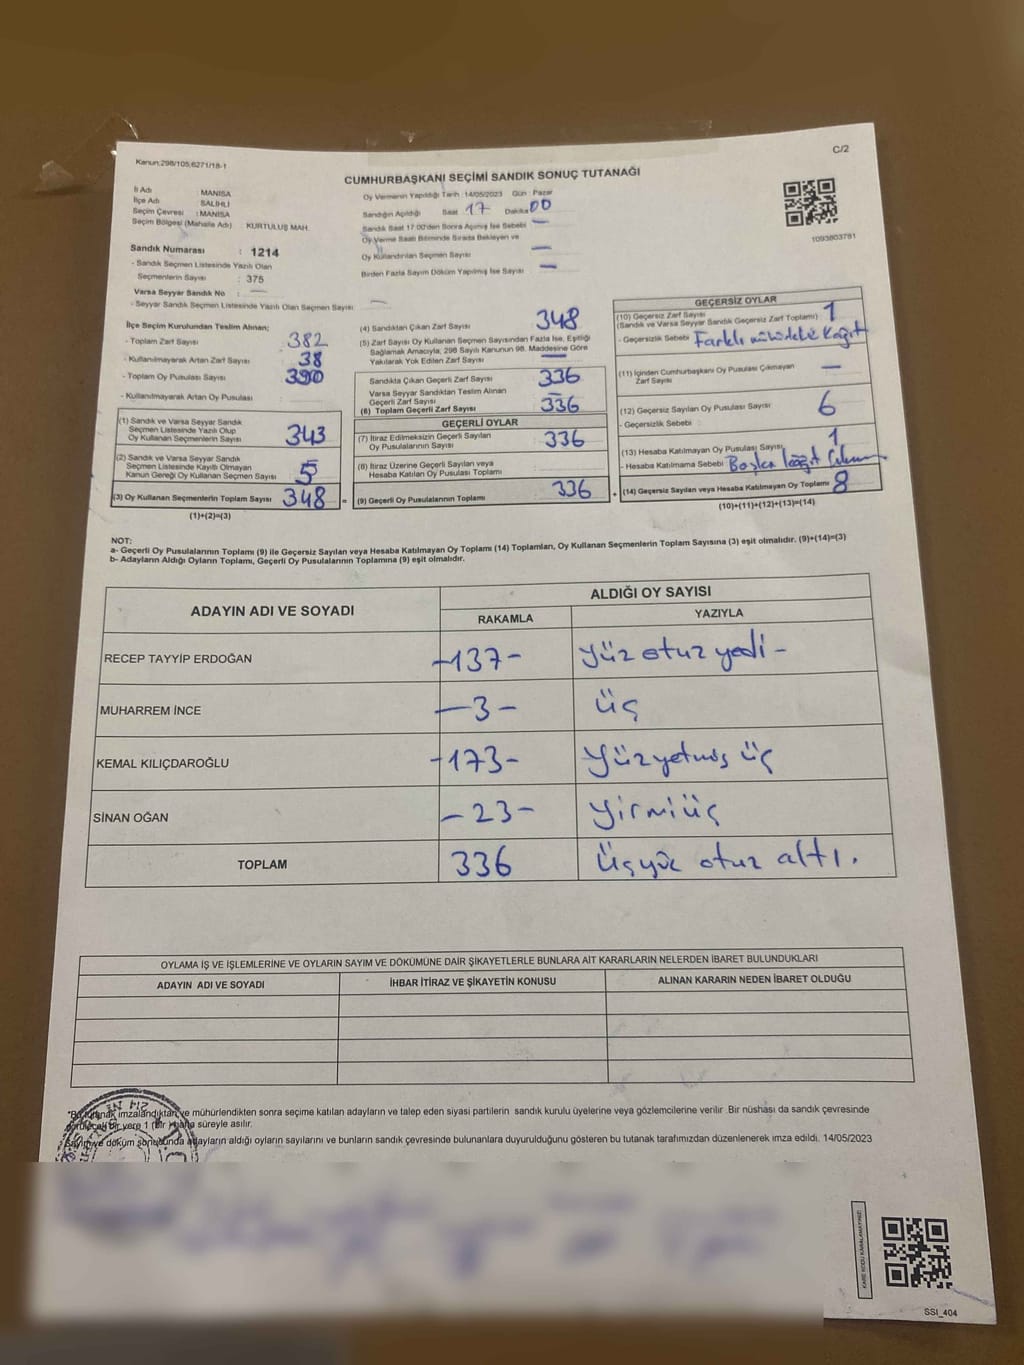 Kanun:298/105,6271/18-1
C/2
CUMHURBAŞKANI SEÇİMİ SANDIK SONUÇ TUTANAĞI
İl Adı : MANİSA
İlçe Adı : SALİHLİ
Seçim Çevresi : MANİSA
Seçim Bölgesi (Mahalle Adı) : KURTULUŞ MAH.
Sandık Numarası : 1214
- Sandık Seçmen Listesinde Yazılı Olan
Seçmenlerin Sayısı : 375
Varsa Seyyar Sandık No : —
- Seyyar Sandık Seçmen Listesinde Yazılı Olan Seçmen Sayısı : —
Oy Vermenin Yapıldığı Tarih : 14/05/2023 Gün : Pazar
Sandığın Açıldığı Saat 17 Dakika 00
Sandık Saat 17:00'den Sonra Açılmış İse Sebebi —
Oy Verme Saati Bitiminde Sırada Bekleyen ve
Oy Kullandırılan Seçmen Sayısı —
Birden Fazla Sayım Döküm Yapılmış İse Sayısı —
1093803781
İlçe Seçim Kurulundan Teslim Alınan;
- Toplam Zarf Sayısı : 382
- Kullanılmayarak Artan Zarf Sayısı : 38
- Toplam Oy Pusulası Sayısı : 390
- Kullanılmayarak Artan Oy Pusulası :
(1) Sandık ve Varsa Seyyar Sandık
Seçmen Listesinde Yazılı Olup
Oy Kullanan Seçmenlerin Sayısı : 343
(2) Sandık ve Varsa Seyyar Sandık
Seçmen Listesinde Kayıtlı Olmayan
Kanun Gereği Oy Kullanan Seçmen Sayısı : 5
(3) Oy Kullanan Seçmenlerin Toplam Sayısı : 348 =
(1)+(2)=(3)
(4) Sandıktan Çıkan Zarf Sayısı : 348
(5) Zarf Sayısı Oy Kullanan Seçmen Sayısından Fazla İse, Eşitliği
Sağlamak Amacıyla, 298 Sayılı Kanunun 98. Maddesine Göre
Yakılarak Yok Edilen Zarf Sayısı : —
Sandıkta Çıkan Geçerli Zarf Sayısı : 336
Varsa Seyyar Sandıktan Teslim Alınan
Geçerli Zarf Sayısı : —
(6) Toplam Geçerli Zarf Sayısı : 336
GEÇERLİ OYLAR
(7) İtiraz Edilmeksizin Geçerli Sayılan
Oy Pusulalarının Sayısı : 336
(8) İtiraz Üzerine Geçerli Sayılan veya
Hesaba Katılan Oy Pusulası Toplamı :
(9) Geçerli Oy Pusulalarının Toplamı : 336 +
GEÇERSİZ OYLAR
(10) Geçersiz Zarf Sayısı
(Sandık ve Varsa Seyyar Sandık Geçersiz Zarf Toplamı) : 1
- Geçersizlik Sebebi : Farklı Kağıt
(11) İçinden Cumhurbaşkanı Oy Pusulası Çıkmayan
Zarf Sayısı : —
(12) Geçersiz Sayılan Oy Pusulası Sayısı : 6
- Geçersizlik Sebebi :
(13) Hesaba Katılmayan Oy Pusulası Sayısı : 1
- Hesaba Katılmama Sebebi : Başka kağıt
(14) Geçersiz Sayılan veya Hesaba Katılmayan Oy Toplamı : 8
(10)+(11)+(12)+(13)=(14)
NOT:
a- Geçerli Oy Pusulalarının Toplamı (9) ile Geçersiz Sayılan veya Hesaba Katılmayan Oy Toplamı (14) Toplamları, Oy Kullanan Seçmenlerin Toplam Sayısına (3) eşit olmalıdır. (9)+(14)=(3)
b- Adayların Aldığı Oyların Toplamı, Geçerli Oy Pusulalarının Toplamına (9) eşit olmalıdır.
ADAYIN ADI VE SOYADI
ALDIĞI OY SAYISI
RAKAMLA YAZIYLA
RECEP TAYYİP ERDOĞAN -137- yüz otuz yedi -
MUHARREM İNCE -3- üç
KEMAL KILIÇDAROĞLU -173- yüzyetmiş üç
SİNAN OĞAN -23- yirmiüç
TOPLAM 336 üçyüz otuz altı.
OYLAMA İŞ VE İŞLEMLERİNE VE OYLARIN SAYIM VE DÖKÜMÜNE DAİR ŞİKAYETLERLE BUNLARA AİT KARARLARIN NELERDEN İBARET BULUNDUKLARI
ADAYIN ADI VE SOYADI İHBAR İTİRAZ VE ŞİKAYETİN KONUSU ALINAN KARARIN NEDEN İBARET OLDUĞU
*Bu tutanak imzalandıktan ve mühürlendikten sonra seçime katılan adayların ve talep eden siyasi partilerin sandık kurulu üyelerine veya gözlemcilerine verilir .Bir nüshası da sandık çevresinde
görülecek bir yere 1 (bir ) hafta süreyle asılır.
Sayım ve döküm sonucunda adayların aldığı oyların sayılarını ve bunların sandık çevresinde bulunanlara duyurulduğunu gösteren bu tutanak tarafımızdan düzenlenerek imza edildi. 14/05/2023
KARE KODU KARALAMAYINIZ!
SSI_404